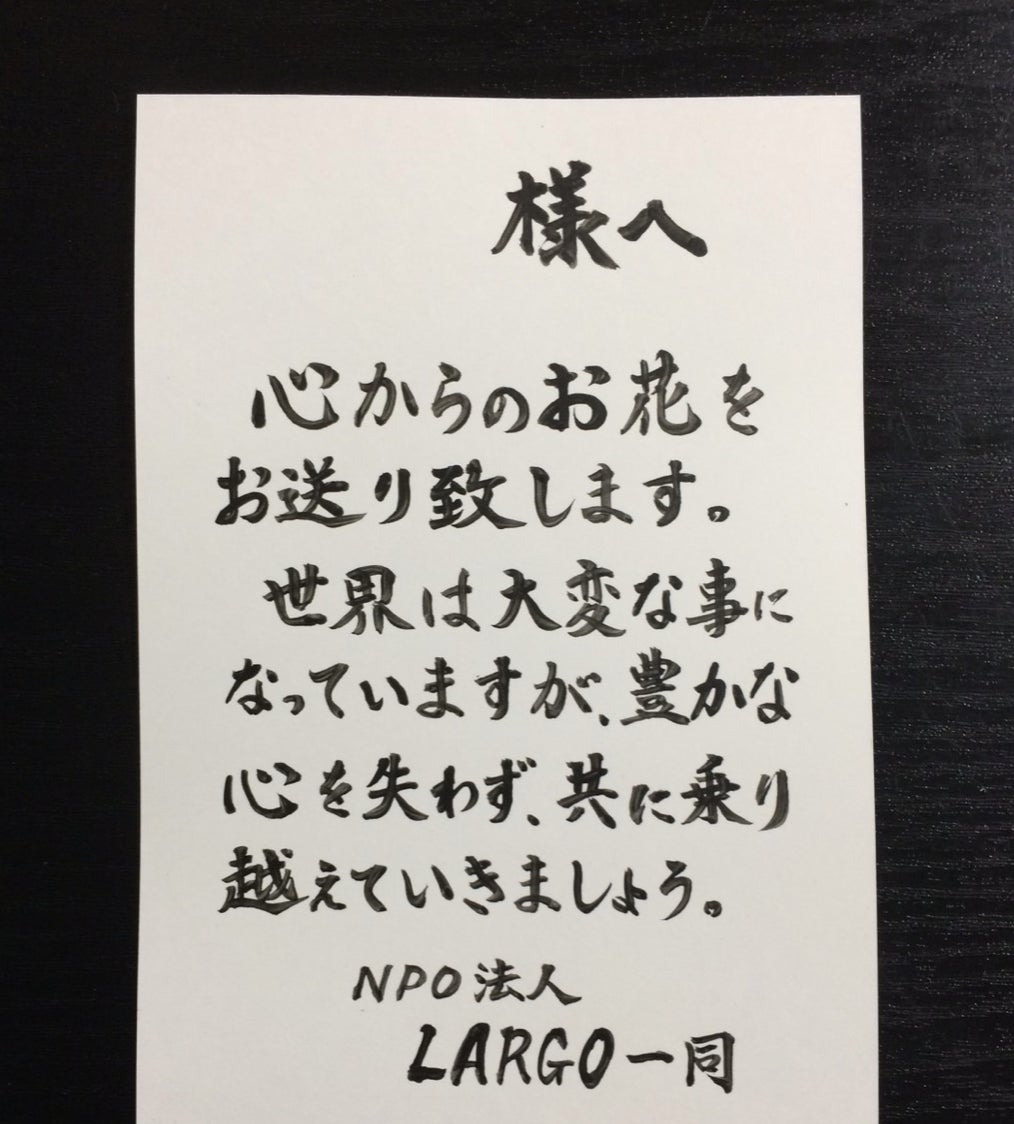 様へ
心からのお花を
お送り致します。
世界は大変な事に
なっていますが、豊かな
心を失わず、共に乗り
越えていきましょう。
NPO法人
LARGO一同